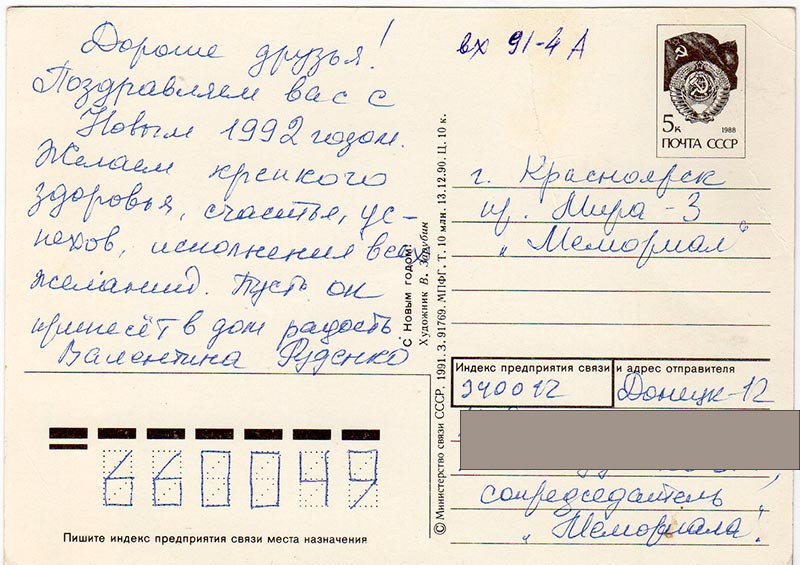 Дорогие друзья!
Поздравляем вас с
Новым 1992 годом.
Желаем крепкого
здоровья, счастья, ус-
пехов, исполнения всех
желаний. Пусть он
принесёт в дом радость.
Валентина Руденко
вх 91-4 А
5к
1988
ПОЧТА СССР
г. Красноярск
пр. Мира - 3
„Мемориал"
Индекс предприятия связи и адрес отправителя
340012 Донецк-12
сопредседатель
„Мемориала".
660049
Пишите индекс предприятия связи места назначения
С Новым годом!
Художник В. Зарубин
© Министерство связи СССР, 1991. З. 91769. МПФГ. Т. 10 млн. 13.12.90. Ц. 10 к.